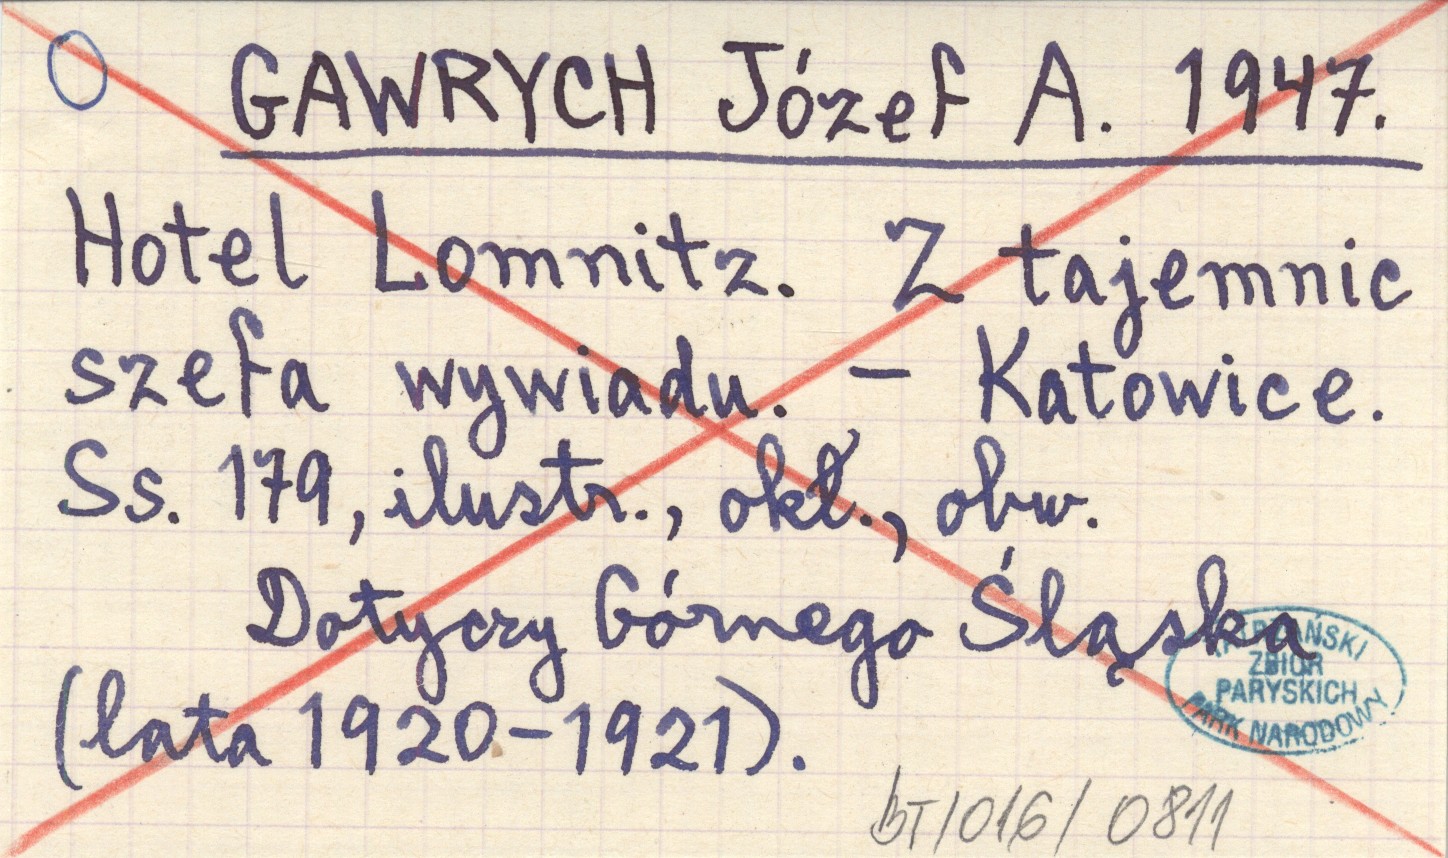 GAWRYCH Józef A. 1947.
Hotel Lomnitz. Z tajemnic
szefa wywiadu. – Katowice.
Ss. 179, ilustr., okł., obw.
Dotyczy Górnego Śląska
(lata 1920–1921).
TATRZAŃSKI
ZBIÓR
PARYSKICH
PARK NARODOWY
BT/016/0811